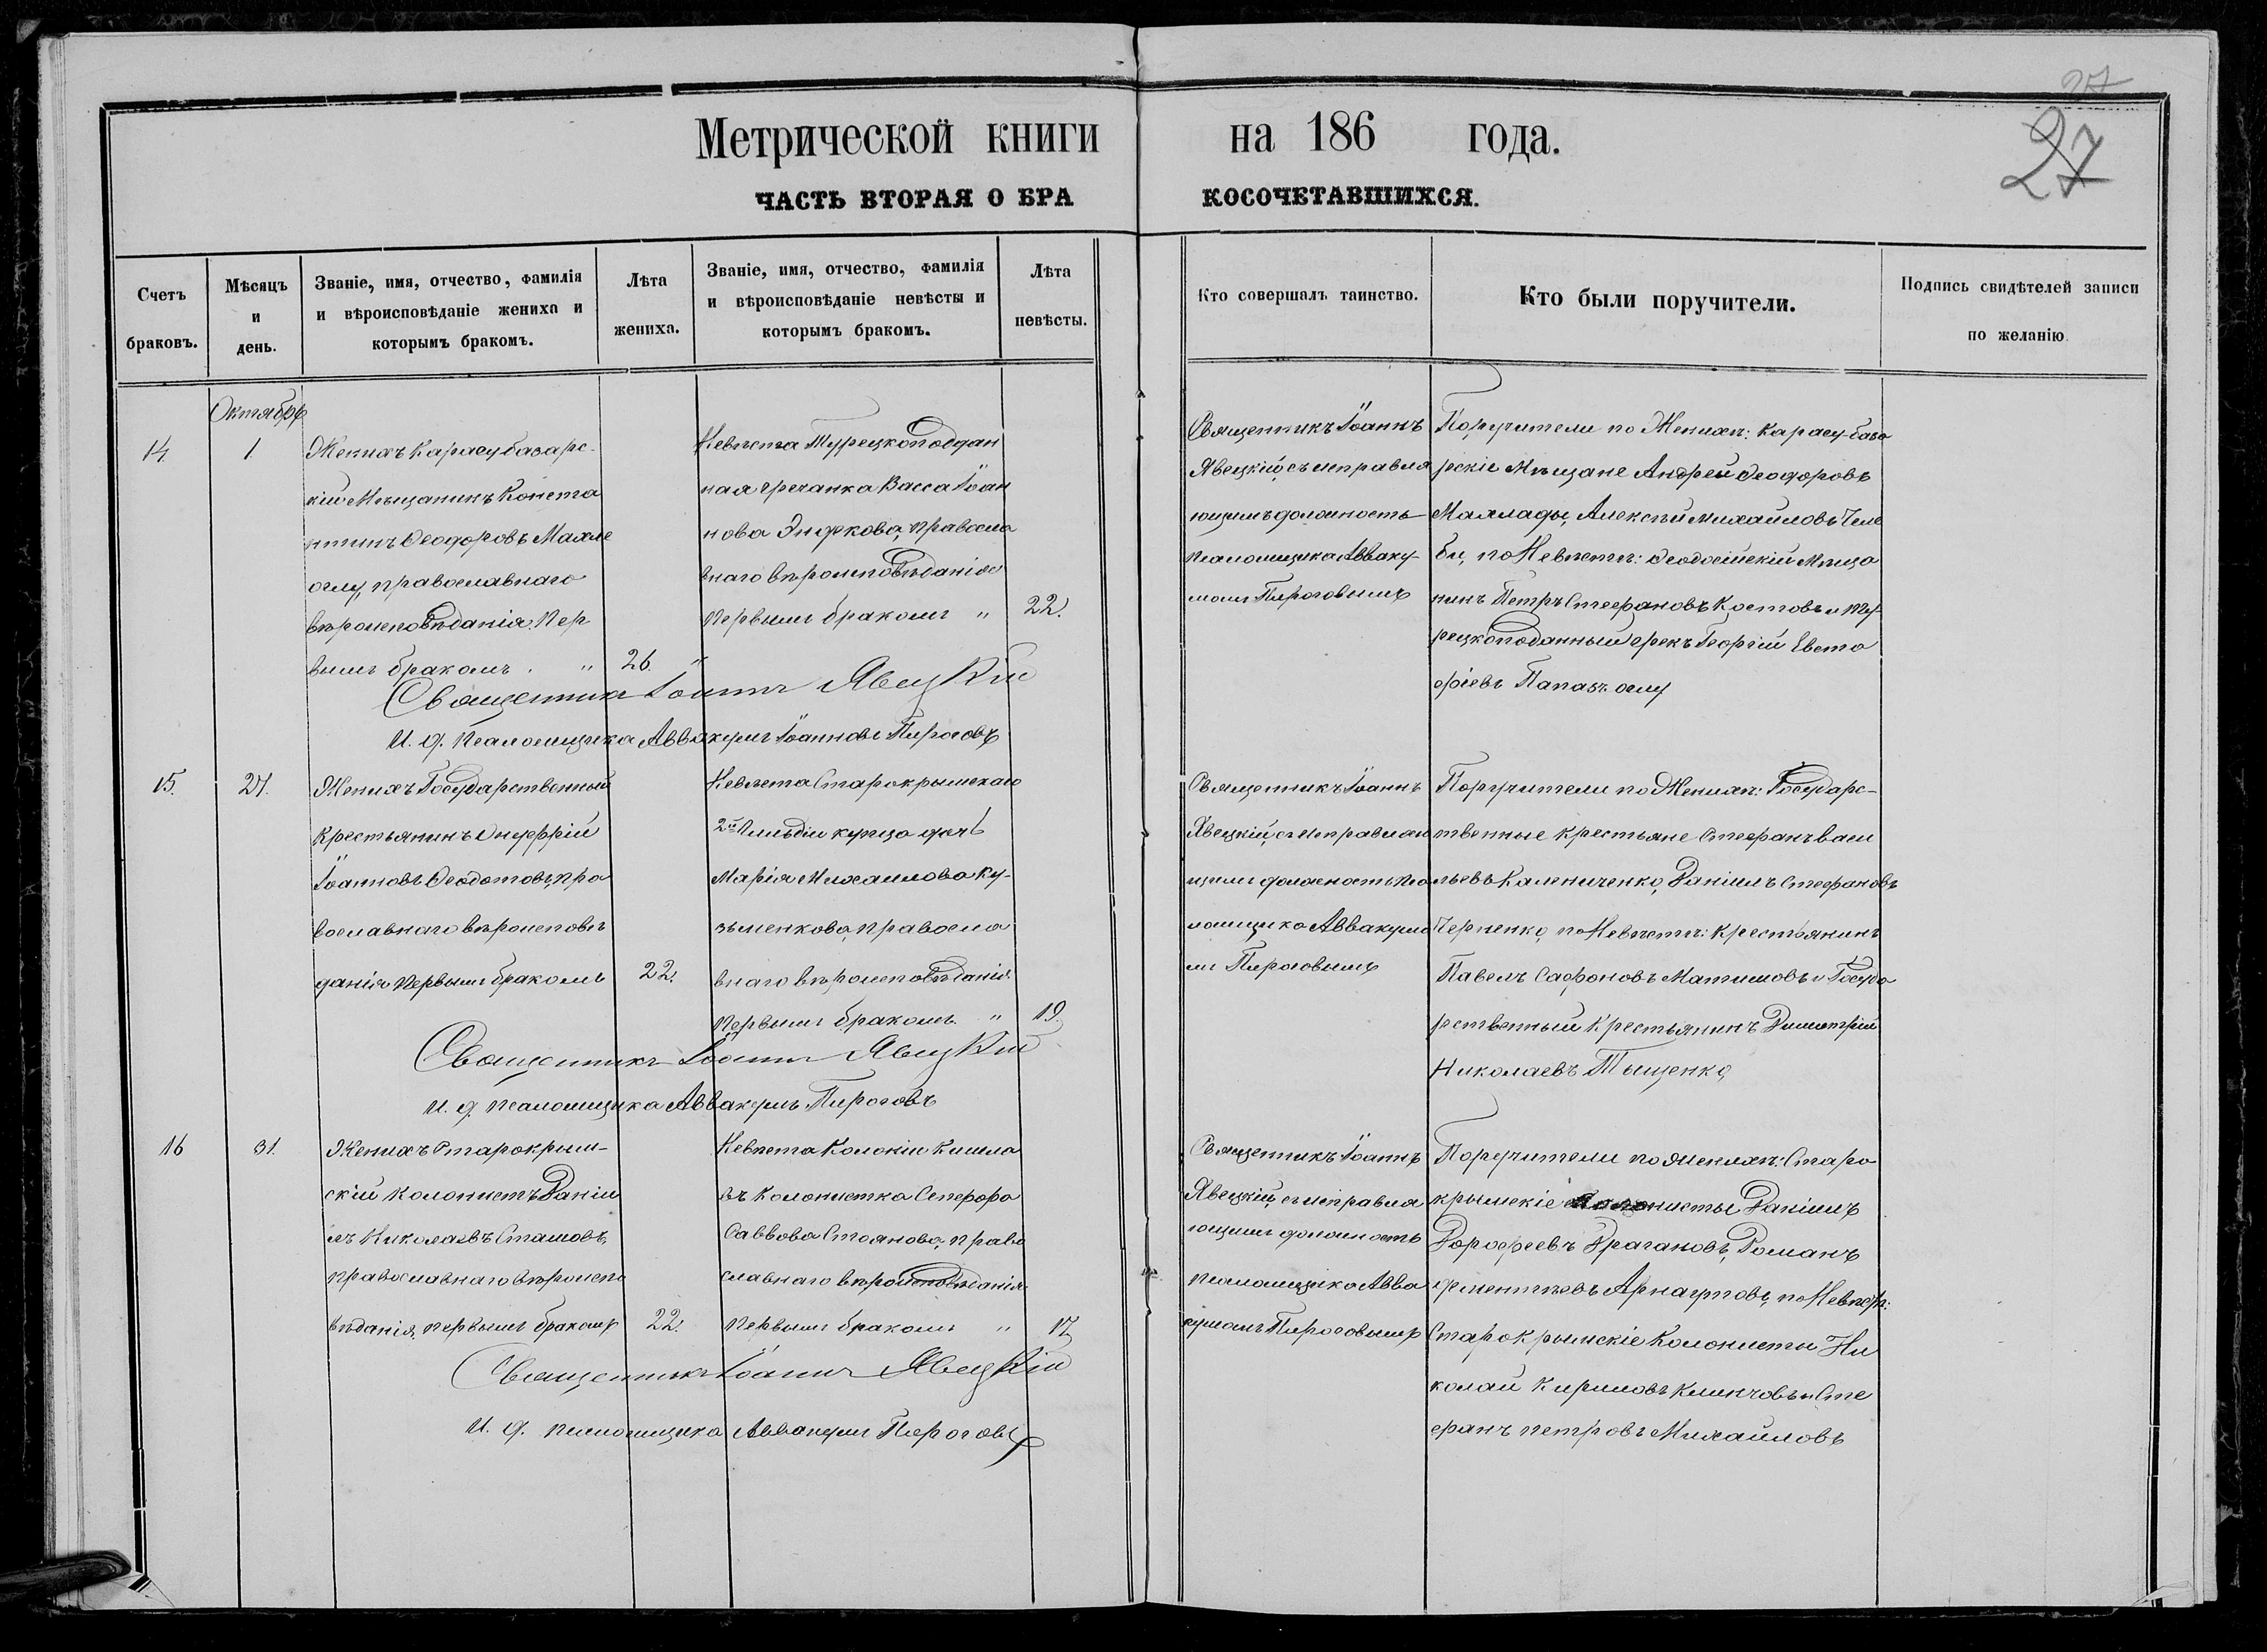 27
27
Метрической книги на 186 года.
ЧАСТЬ ВТОРАЯ О БРАКОСОЧЕТАВШИХСЯ.
Счетъ браковъ.
Мѣсяцъ и день.
Званіе, имя, отчество, фамилія
и вѣроисповѣданіе жениха и
которымъ бракомъ.
Лѣта жениха.
Званіе, имя, отчество, фамилія
и вѣроисповѣданіе невѣсты и
которымъ бракомъ.
Лѣта невѣсты.
Кто совершалъ таинство.
Кто были поручители.
Подпись свидѣтелей записи
по желанію
Октябрь
14 1
Женихъ Карасубазарс-
кій Мѣщанинъ Конста
нтинъ Ѳеодоровъ Махле
оглу, православнаго
вѣроисповѣданія. Пер
вымъ бракомъ. " 26. "
Невѣста Турецкоподдан
ная гречанка Васса Іоан
нова Эндекова, правосла
внаго вѣроисповѣданія
первымъ бракомъ " 22.
Священникъ Іоаннъ
Явецкій, съ исправля
ющимъ должность
псаломщика Авваку-
момъ Пироговымъ
Поручители по Женихѣ: Карасу-база
рскіе Мѣщане Андрей Ѳеодоровъ
Малладьи, Алексѣй Михайловъ Челе
би, по Невѣстѣ: Ѳеодосійскій Мѣща
нинъ Петръ Стефановъ Костовъ и Ту-
рецкоподанный грекъ Георгій Евста
фіевъ Папазъ оглу
Священникъ Іоаннъ Явецкій
И. д. псаломщика Аввакумъ Іоанновъ Пироговъ
15. 27.
Женихъ Государственный
крестьянинъ Онуфрій
Іоанновъ Ѳеодотовъ, пра
вославнаго вѣроисповѣ
данія первымъ бракомъ 22.
Невѣста Старокрымскаго
2й Гильдіи купца дочь
Марія Михаилова Ку-
зьменкова, правосла
внаго вѣроисповѣданія
первымъ бракомъ. " 19.
Священникъ Іоаннъ
Явецкій, съ исправляю
щимъ должность пса
ломщика Аввакумо
мъ Пироговымъ
Поручители по Женихѣ: Государс-
твенные крестьяне Стефанъ Васи
льевъ Калениченко, Даніилъ Стефановъ
Черненко, по Невѣстѣ: Крестьянинъ
Павелъ Сафоновъ Матишовъ и Госуда
рственный Крестьянинъ Димитрій
Николаевъ Тыщенко,
Священникъ Іоаннъ Явецкій
И. д. псаломщика Аввакумъ Пироговъ
16 31.
Женихъ Старокрым-
скій колонистъ Даніи
лъ Николаевъ Сташовъ,
православнаго вѣроиспо
вѣданія, первымъ бракомъ 22.
Невѣста Колоніи Кишла
въ Колонистка Сепфора
Саввова Стоянова, право
славнаго вѣроисповѣданія
первымъ бракомъ " 17,
Священникъ Іоаннъ
Явецкій, съ исправля
ющимъ должность
псаломщика Авва
кумомъ Пироговымъ
Поручители по Женихѣ: Старо
крымскіе колонисты Даніилъ
Дорофеевъ Драгановъ, Романъ
Дементьевъ Арнаутовъ, по Невѣстѣ:
Старокрымскіе Колонисты Ни
колай Кириловъ Клинчовъ и Сте
фанъ Петровъ Михайловъ
Священникъ Іоаннъ Явецкій
И. д. псаломщика Аввакумъ Пироговъ